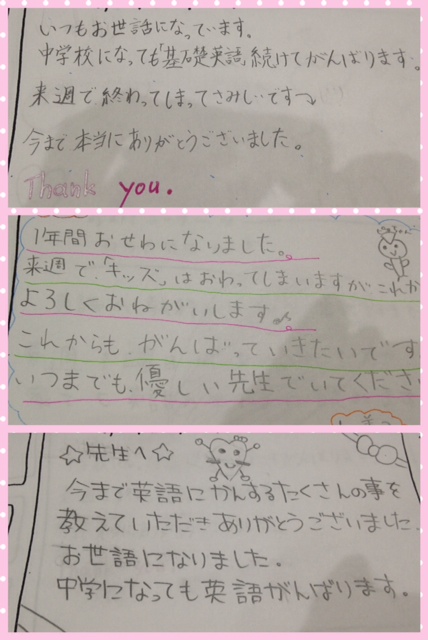 いつもお世話になっています。
中学校になっても「基礎英語」続けてがんばります。
来週で終わってしまってさみしいです
今まで本当にありがとうございました。
Thank you.
1年間おせわになりました。
来週で、「キッズ」はおわってしまいますがこれか
よろしくおねがいします♪
これからも、がんばっていきたいです
いつまでも、優しい先生でいてくださ
☆先生へ☆
今まで英語にかんするたくさんの事を
教えていただきありがとうございました。
お世語になりました。
中学になっても英語がんばります。